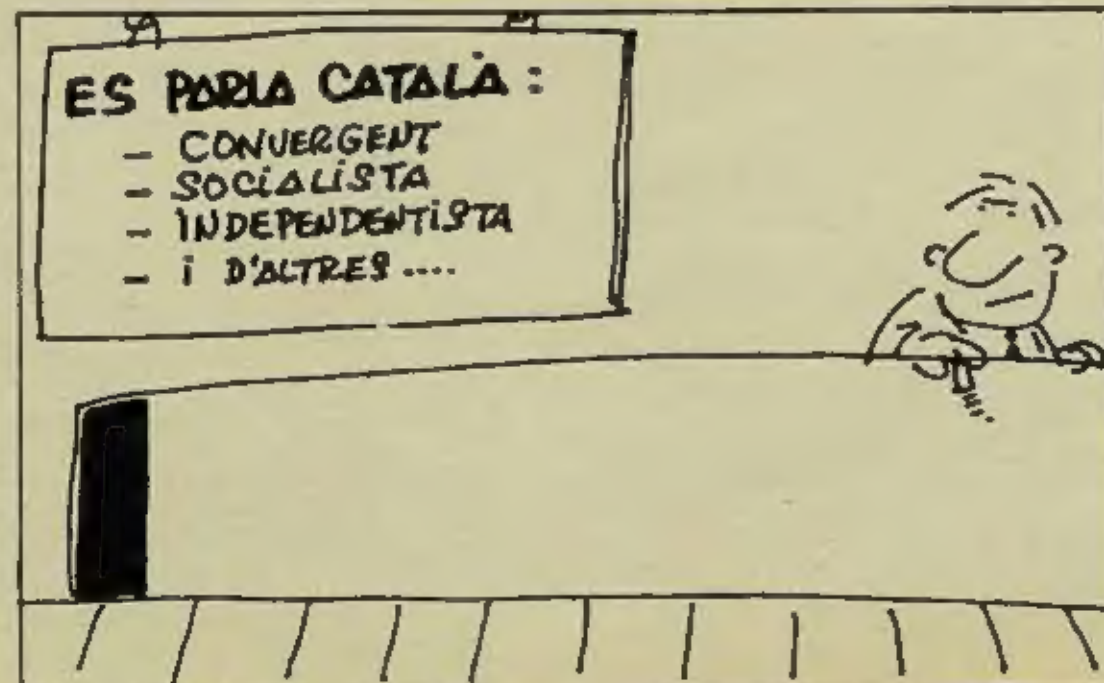 ES PARLA CATALÀ :
- CONVERGENT
- SOCIALISTA
- INDEPENDENTISTA
- i D'ALTRES ....